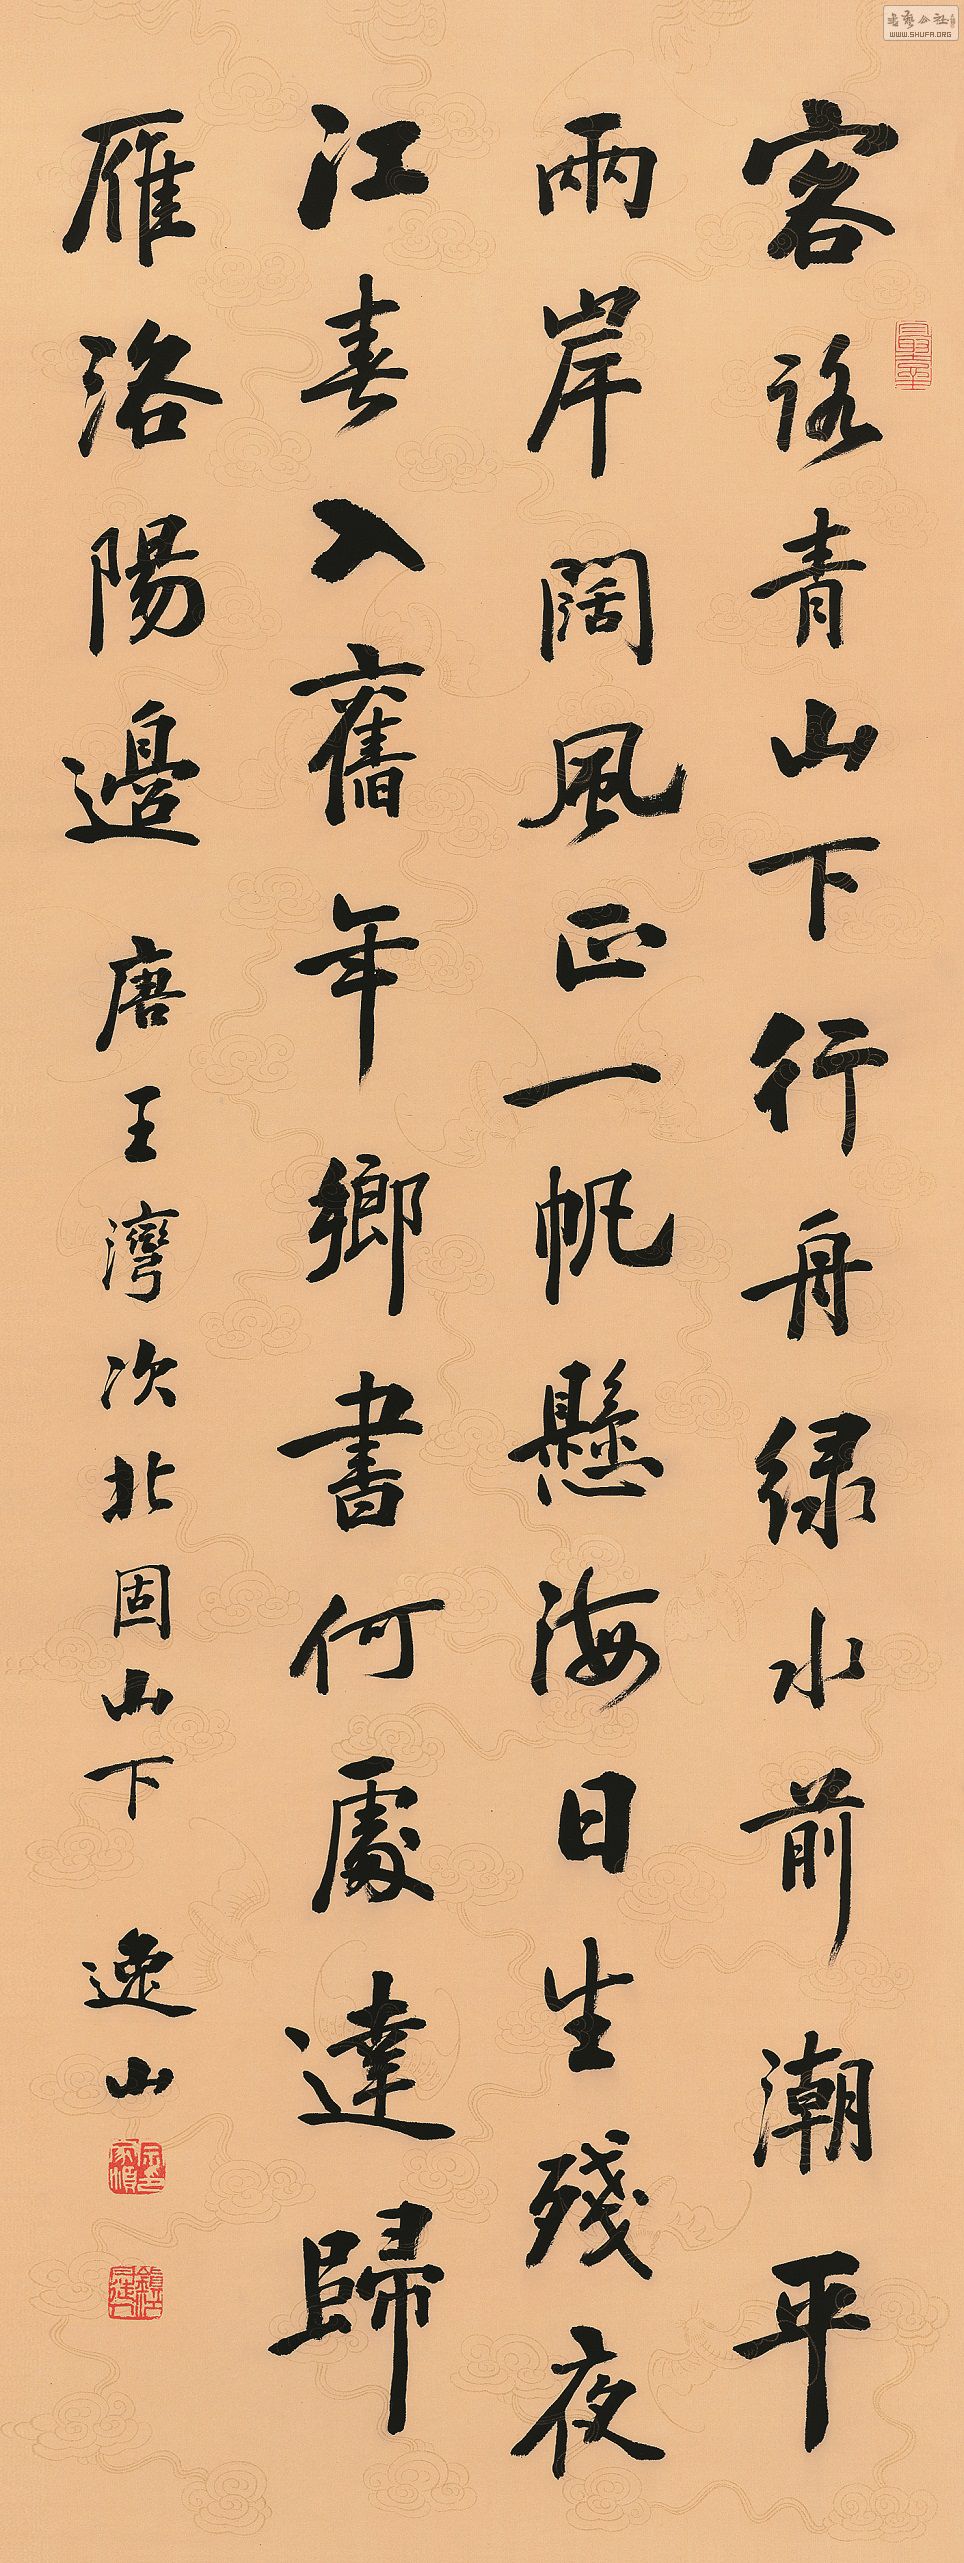 書藝公社
WWW.SHUFA.ORG
客路青山下行舟绿水前潮平
兩岸闊風正一帆懸海日生殘夜
江春入舊年鄉書何處達歸
雁洛陽邊 唐王灣次北固山下 逸山